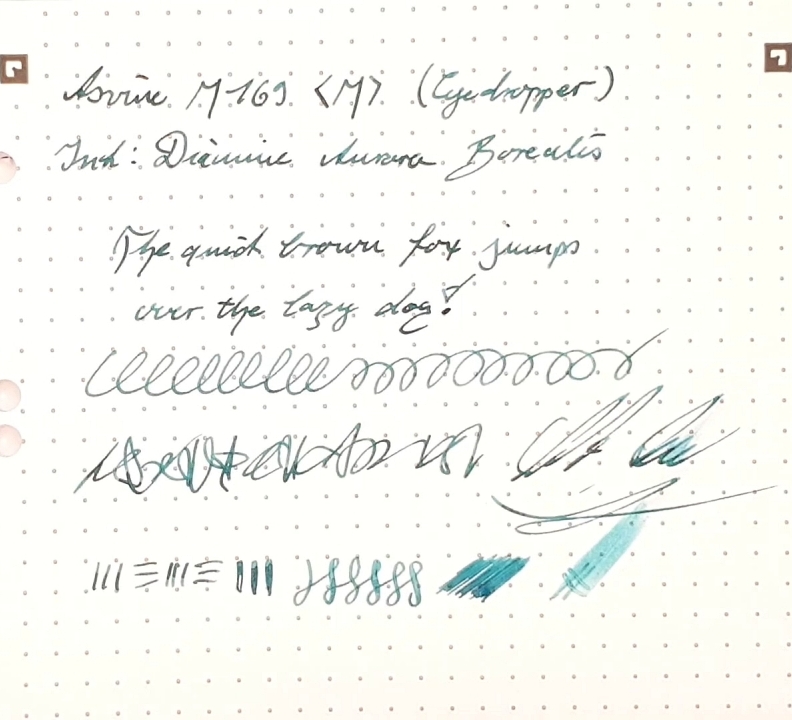 Asvine M169 <M> (Eyedropper)
Ink: Diamine Aurora Borealis
The quick brown fox jumps
over the lazy dog!